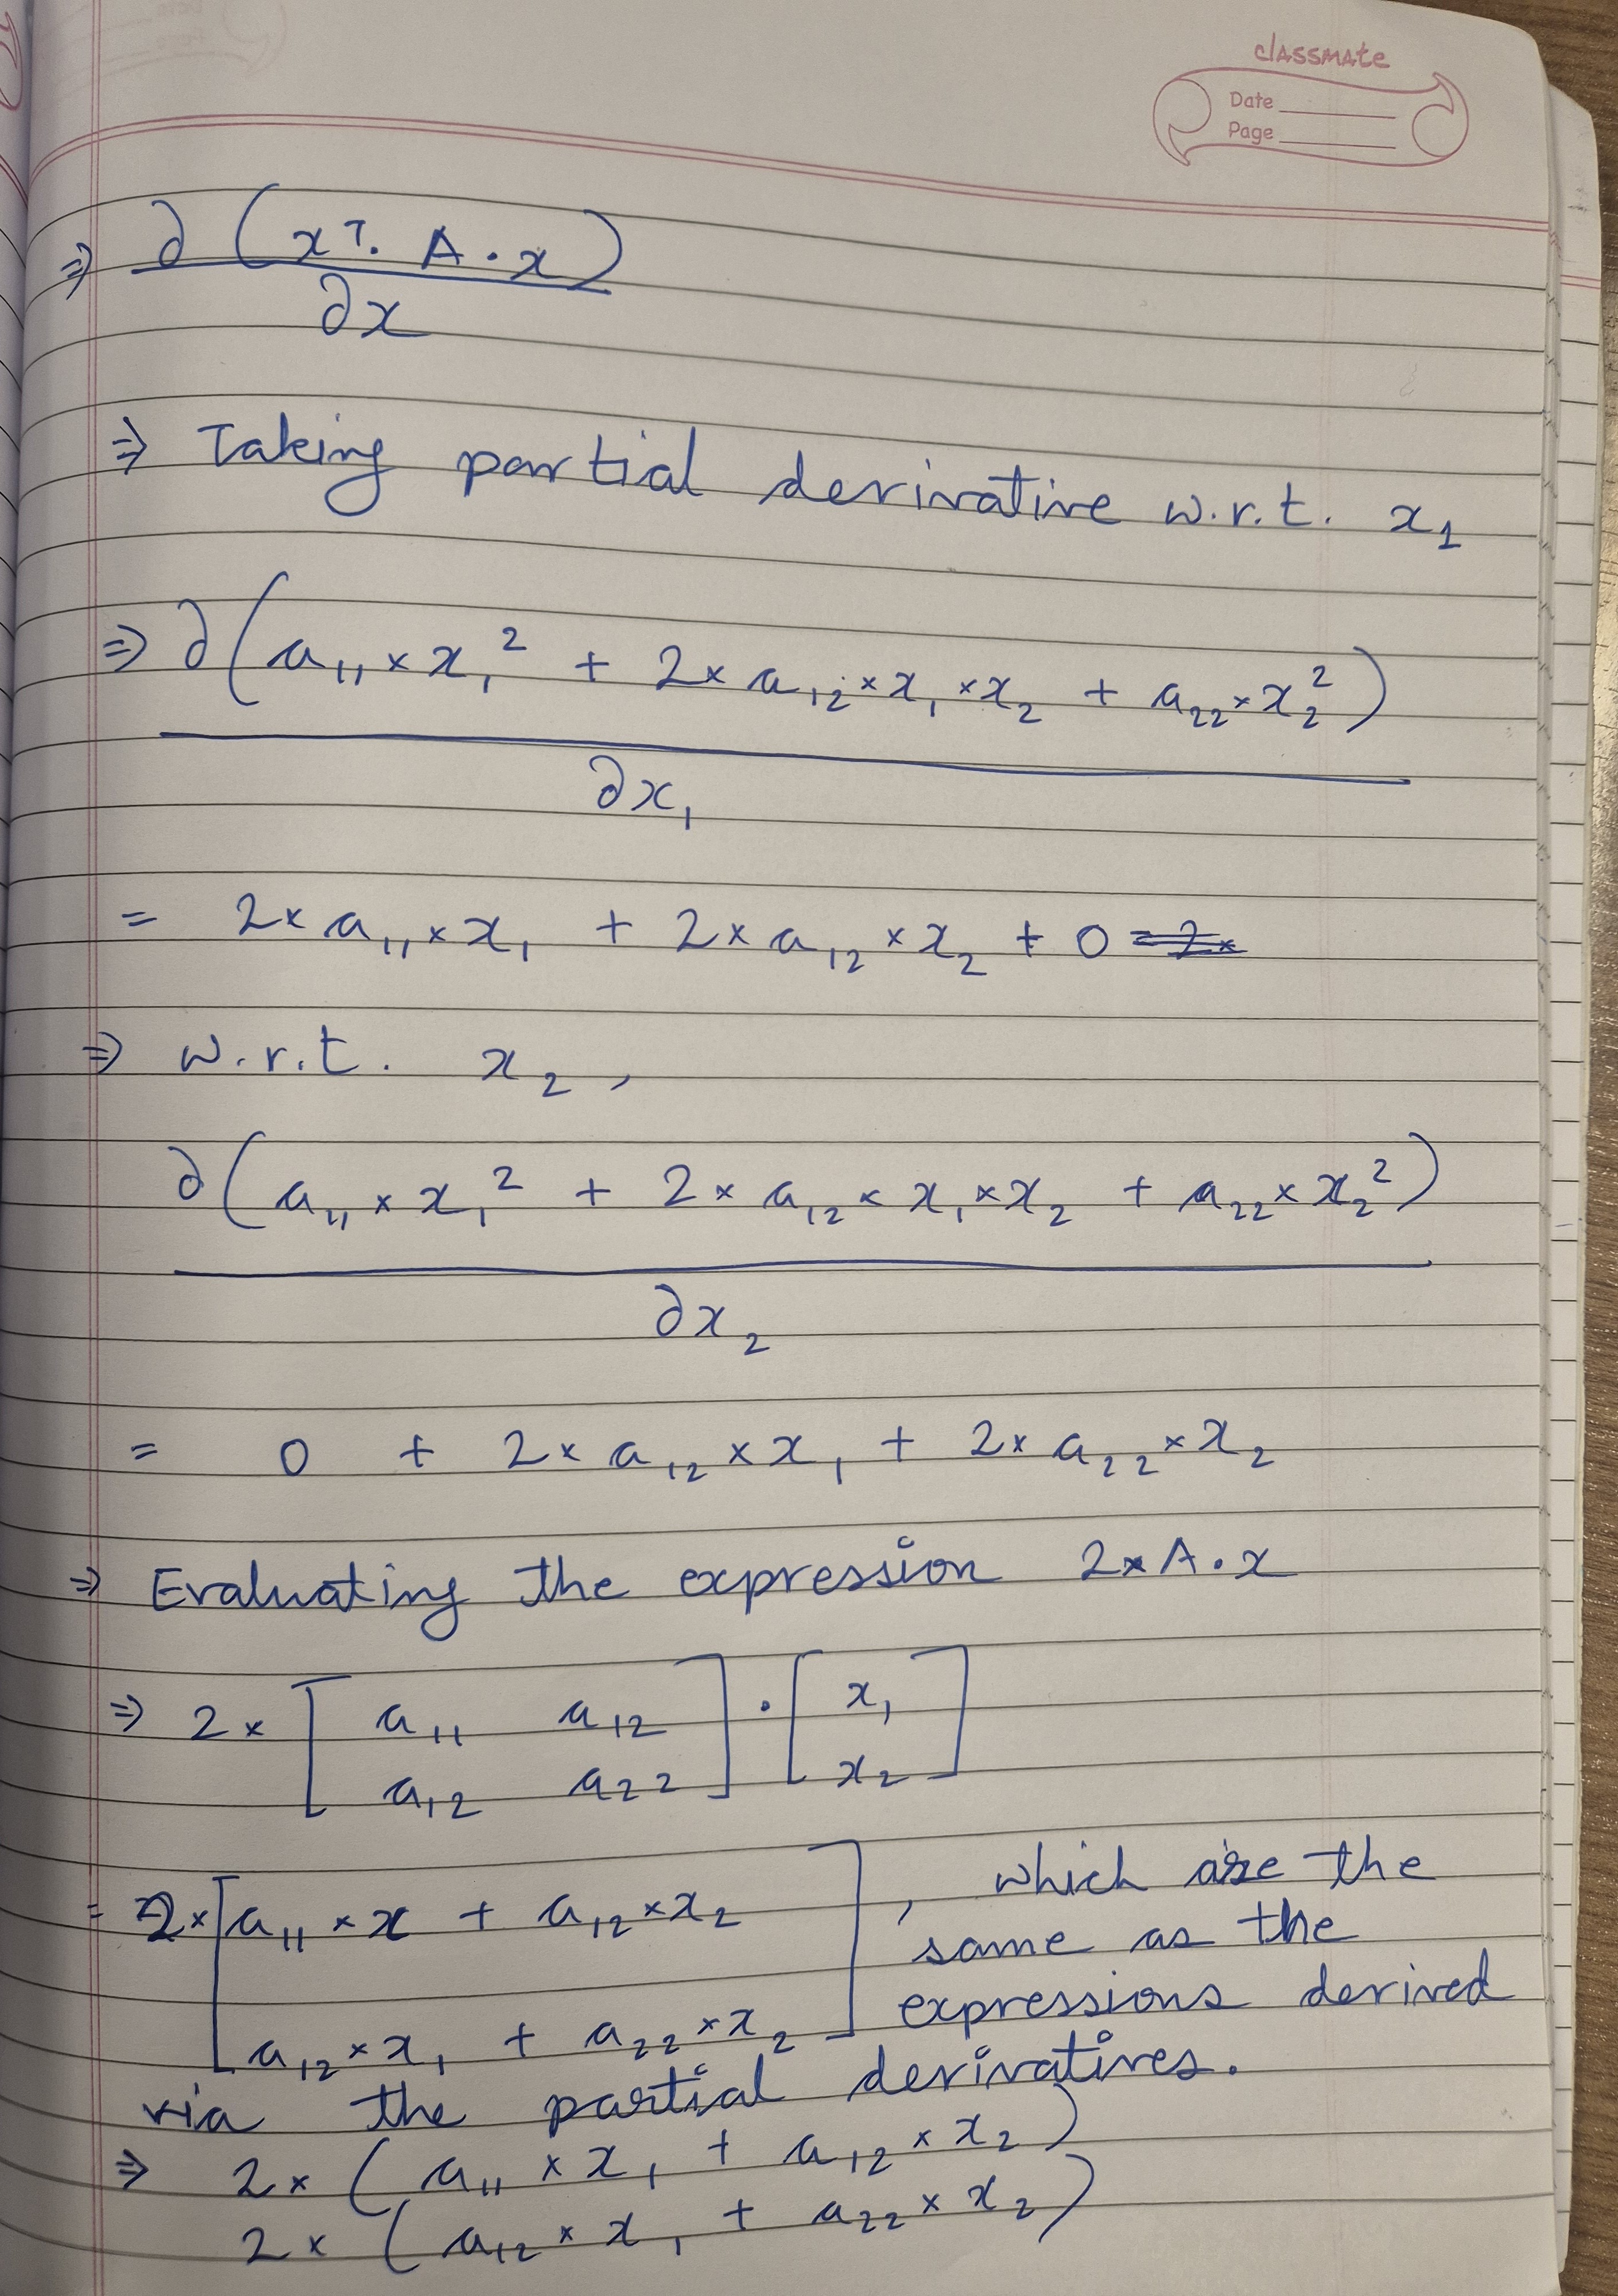 classmate
Date
Page
⇒ ∂(xᵀ. A . x)
∂x
⇒ Taking partial derivative w.r.t. x₁
⇒ ∂(a₁₁ × x₁² + 2 × a₁₂ × x₁ × x₂ + a₂₂ × x₂²)
∂x₁
= 2 × a₁₁ × x₁ + 2 × a₁₂ × x₂ + 0
⇒ w.r.t. x₂,
∂(a₁₁ × x₁² + 2 × a₁₂ × x₁ × x₂ + a₂₂ × x₂²)
∂x₂
= 0 + 2 × a₁₂ × x₁ + 2 × a₂₂ × x₂
⇒ Evaluating the expression 2 × A . x
⇒ 2 × [ a₁₁ a₁₂ ] . [ x₁ ]
a₁₂ a₂₂ x₂
= 2 × [ a₁₁ × x + a₁₂ × x₂ ], which are the
same as the
expressions derived
a₁₂ × x₁ + a₂₂ × x₂
via the partial derivatives.
⇒ 2 × (a₁₁ × x₁ + a₁₂ × x₂)
2 × (a₁₂ × x₁ + a₂₂ × x₂)